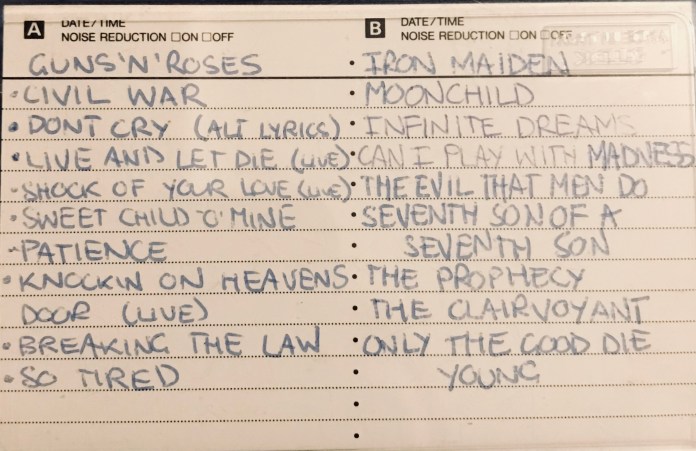 A DATE/TIME
NOISE REDUCTION □ON □OFF
GUNS'N'ROSES
• CIVIL WAR
• DONT CRY (ALT LYRICS)
• LIVE AND LET DIE (LIVE)
• SHOCK OF YOUR LOVE (LIVE)
• SWEET CHILD O'MINE
• PATIENCE
• KNOCKIN ON HEAVENS
DOOR (LIVE)
• BREAKING THE LAW
• SO TIRED
B DATE/TIME
NOISE REDUCTION □ON □OFF
• IRON MAIDEN
• MOONCHILD
• INFINITE DREAMS
• CAN I PLAY WITH MADNESS
• THE EVIL THAT MEN DO
• SEVENTH SON OF A
SEVENTH SON
• THE PROPHECY
• THE CLAIRVOYANT
• ONLY THE GOOD DIE
YOUNG